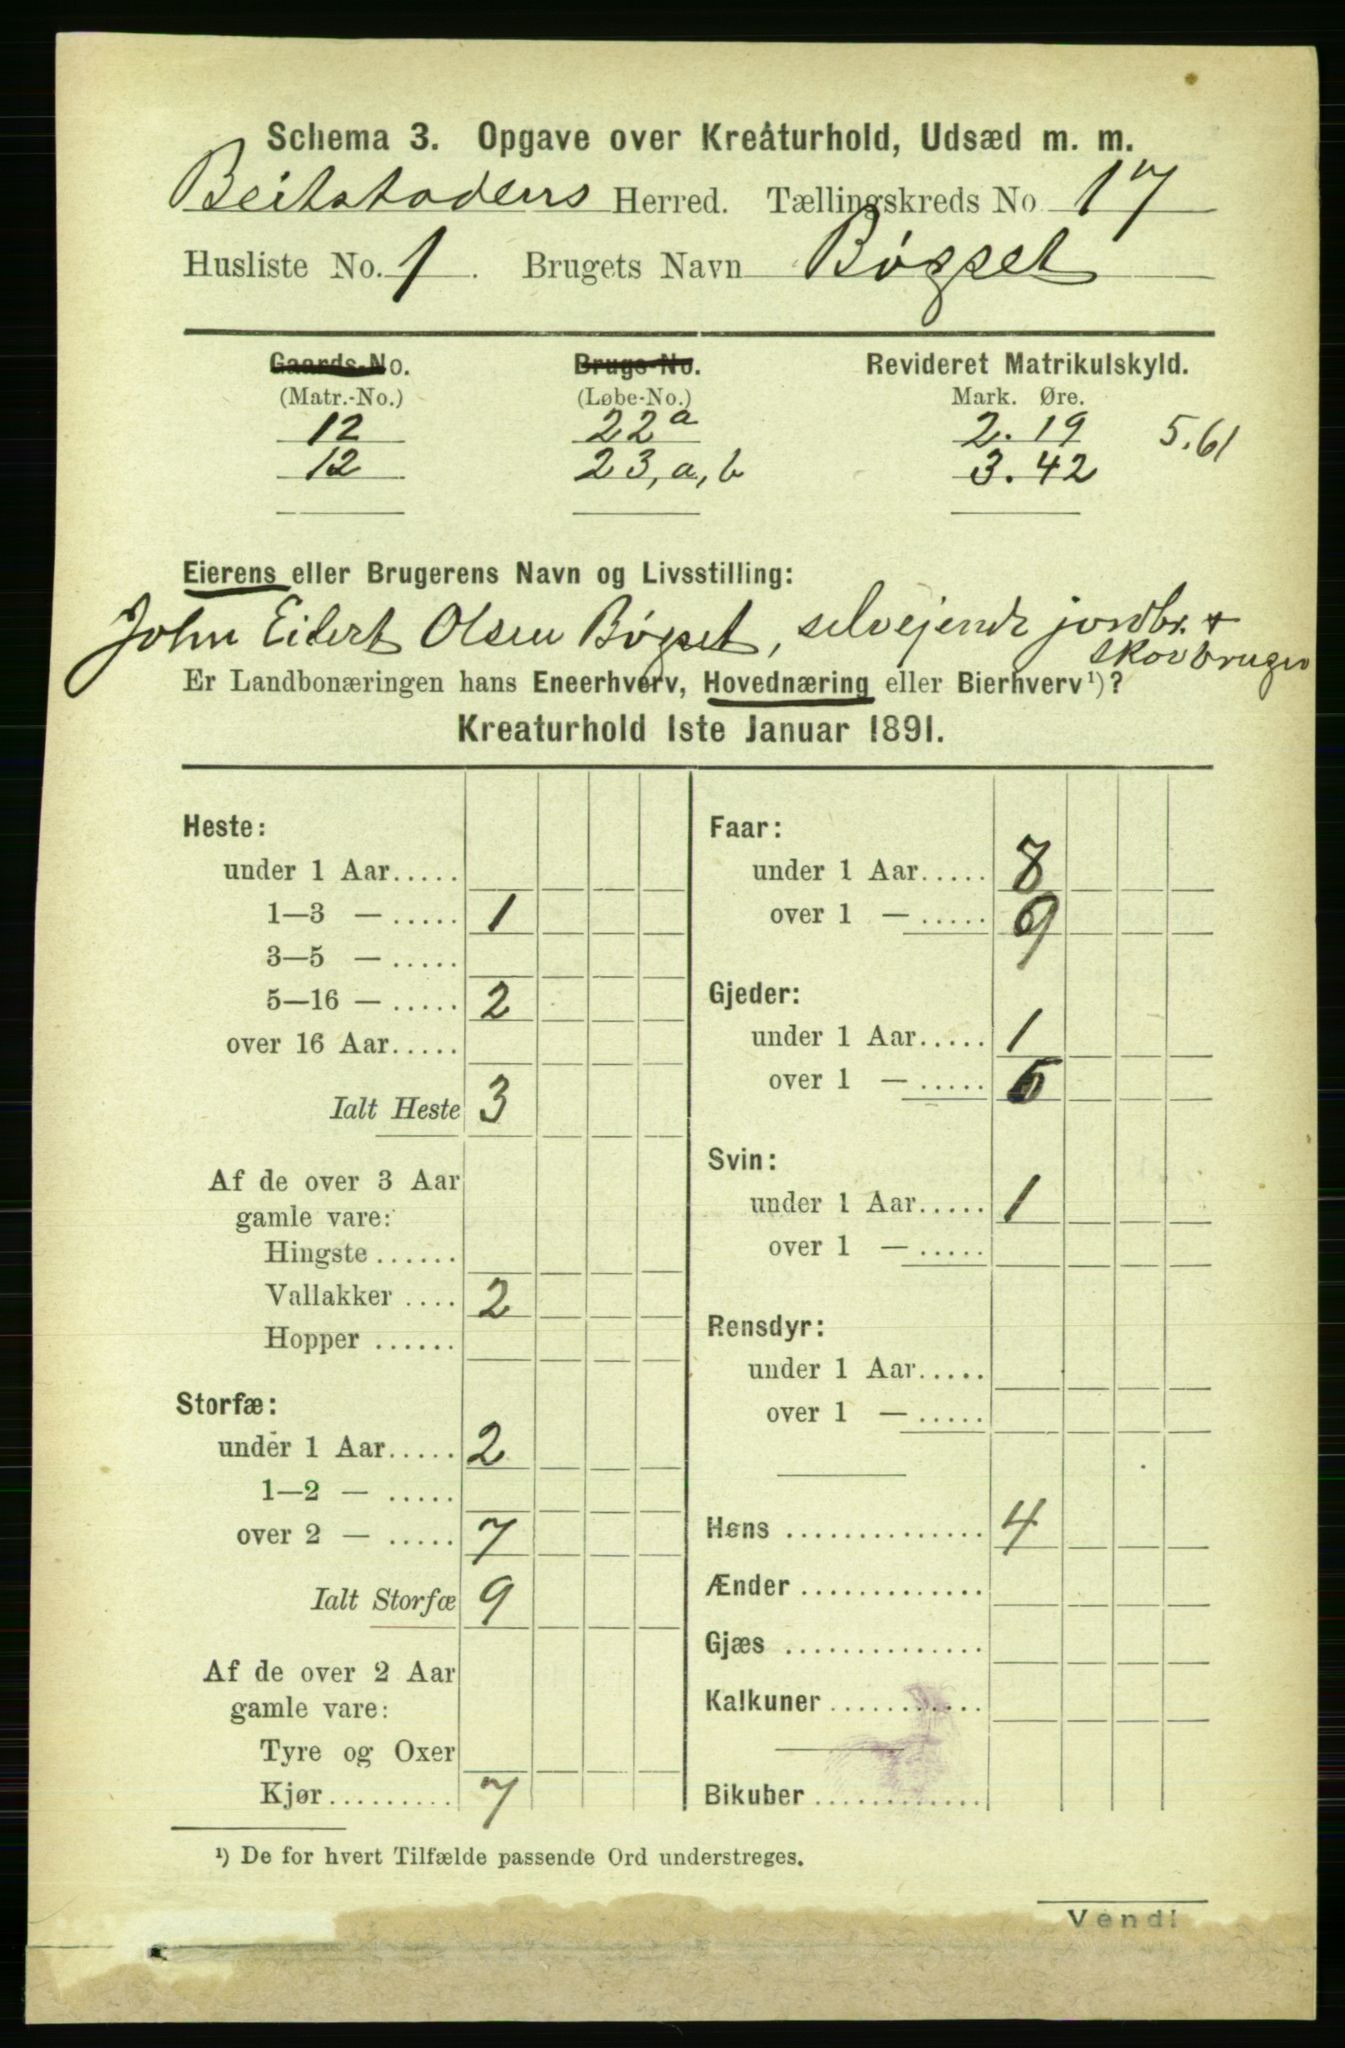 Schema 3. Opgave over Kreaturhold, Udsæd m. m.
Beitstadens Herred. Tællingskreds No 17
Husliste No. 1. Brugets Navn Bøgset
Gaards-No. Brugs-No. Revideret Matrikulskyld.
(Matr.-No.) (Løbe-No.) Mark. Øre.
12 22a 2.19 5.61
12 23, a, b 3.42
Eierens eller Brugerens Navn og Livsstilling:
John Eilert Olsen Bøgset, selvejende jordbr. +
skovbruger
Er Landbonæringen hans Eneerhverv, Hovednæring eller Bierhverv ¹)?
Kreaturhold 1ste Januar 1891.
Heste:
under 1 Aar.....
1—3 — ..... 1
3—5 — .....
5—16 — ..... 2
over 16 Aar.....
Ialt Heste 3
Af de over 3 Aar
gamle vare:
Hingste ......
Vallakker .... 2
Hopper ......
Storfæ:
under 1 Aar..... 2
1—2 — .....
over 2 — ..... 7
Ialt Storfæ 9
Af de over 2 Aar
gamle vare:
Tyre og Oxer
Kjør......... 7
Faar:
under 1 Aar..... 8
over 1 — ..... 9
Gjeder:
under 1 Aar..... 1
over 1 — .....
Svin:
under 1 Aar..... 1
over 1 — .....
Rensdyr:
under 1 Aar.....
over 1 — .....
Høns .............. 4
Ænder .............
Gjæs ..............
Kalkuner ...........
Bikuber ............
¹) De for hvert Tilfælde passende Ord understreges.
Vend!